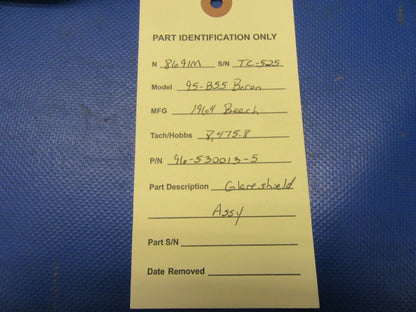 PART IDENTIFICATION ONLY
N 8691M S/N TC-525
Model 95-B55 Baron
MFG 1964 Beech
Tach/Hobbs 8,475.8
P/N 96-530013-5
Part Description Glareshield
Assy
Part S/N
Date Removed